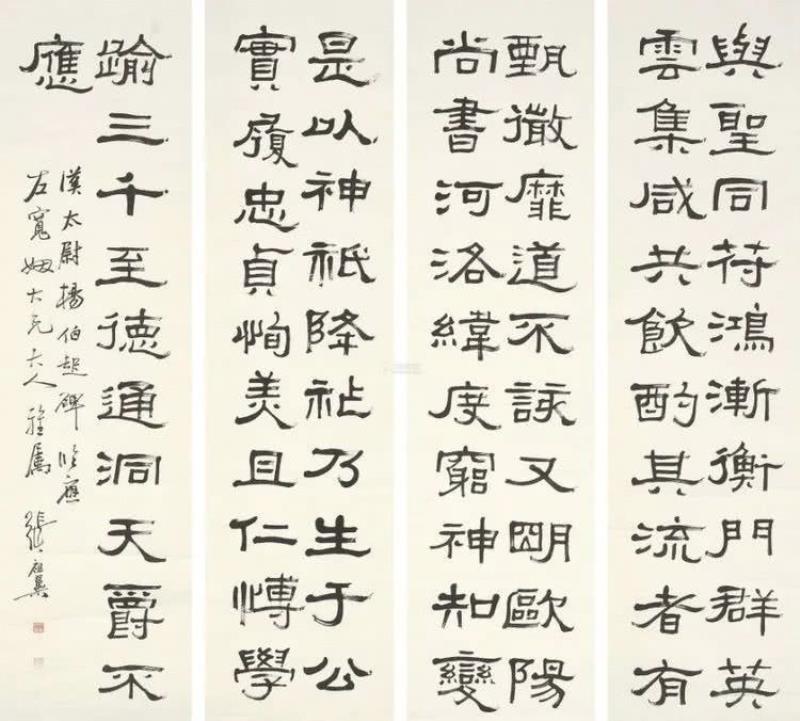 與聖同苻鴻漸衡門群英
雲集咸共飲酌其流者有
甄微靡道不該又明歐陽
尚書河洛緯度窮神知變
是以神祇降祉乃生于公
實履忠貞恂美且仁愽學
踰三千至德通洞天爵不
應
漢太尉楊伯起碑臨應
右寬姻大兄大人雅屬 張祖翼